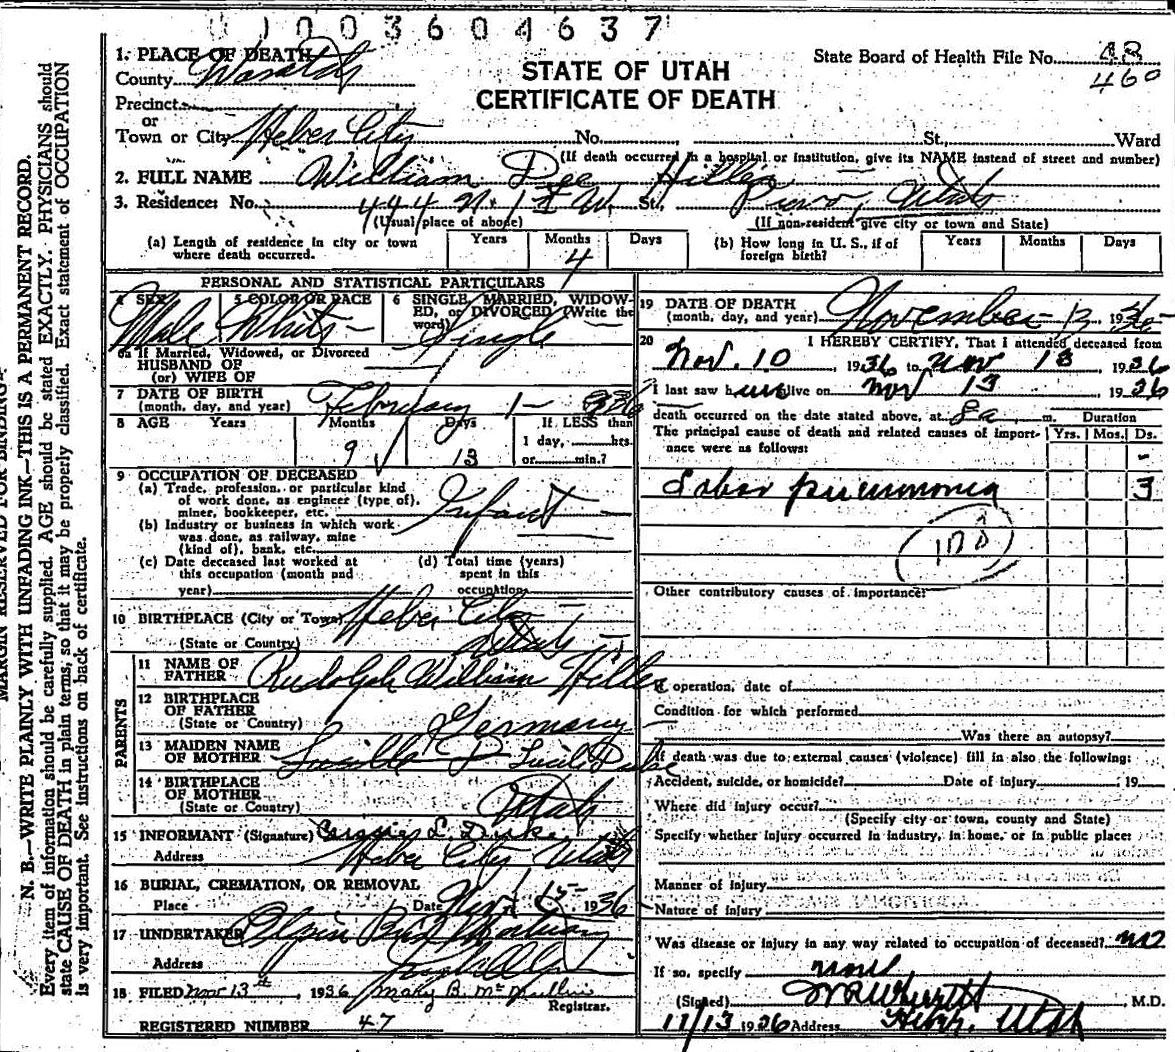 0003604637
1. PLACE OF DEATH
County Wasatch
STATE OF UTAH
CERTIFICATE OF DEATH
State Board of Health File No.
460
Precinct
or
Town or City Heber City No. St., Ward
(If death occurred in a hospital or institution, give its NAME instead of street and number)
2. FULL NAME William Dee Hiller
3. Residence: No. 444 N. 1st W. St., Provo, Utah
(Usual place of abode) (If non-resident give city or town and State)
(a) Length of residence in city or town where death occurred. Years Months 4 Days
(b) How long in U. S., if of foreign birth? Years Months Days
PERSONAL AND STATISTICAL PARTICULARS
4 SEX Male
5 COLOR OR RACE White
6 SINGLE, MARRIED, WIDOWED, or DIVORCED (Write the word) Single
6a If Married, Widowed, or Divorced
HUSBAND OF
(or) WIFE OF
7 DATE OF BIRTH
(month, day, and year) February 1- 936
8 AGE Years Months Days If LESS than
9 13 1 day, hrs.
or min.?
9 OCCUPATION OF DECEASED
(a) Trade, profession, or particular kind
of work done, as engineer (type of),
miner, bookkeeper, etc. Infant
(b) Industry or business in which work
was done, as railway, mine
(kind of), bank, etc.
(c) Date deceased last worked at
this occupation (month and
year)
(d) Total time (years)
spent in this
occupation
10 BIRTHPLACE (City or Town) Heber City
(State or Country) Utah
PARENTS
11 NAME OF
FATHER Rudolph William Hiller
12 BIRTHPLACE
OF FATHER
(State or Country) Germany
13 MAIDEN NAME
OF MOTHER Lucile Duke
14 BIRTHPLACE
OF MOTHER
(State or Country) Utah
15 INFORMANT (Signature) L. Duke
Address Heber City Utah
16 BURIAL, CREMATION, OR REMOVAL
Place Date Nov 15 1936
17 UNDERTAKER
Address
18 FILED Nov 13th, 1936 Mary B. McMullin
Registrar.
REGISTERED NUMBER 47
19 DATE OF DEATH
(month, day, and year) November 13, 1936
20 I HEREBY CERTIFY, That I attended deceased from
Nov. 10, 1936 to Nov 13, 1936
I last saw h alive on Nov 13 1936
death occurred on the date stated above, at 8 a. m.
Duration
The principal cause of death and related causes of importance were as follows: Yrs. Mos. Ds.
Lobar pneumonia 3
108
Other contributory causes of importance:
If operation, date of
Condition for which performed
Was there an autopsy?
If death was due to external causes (violence) fill in also the following:
Accident, suicide, or homicide? Date of injury, 19
Where did injury occur?
(Specify city or town, county and State)
Specify whether injury occurred in industry, in home, or in public place:
Manner of injury
Nature of injury
Was disease or injury in any way related to occupation of deceased? no
If so, specify none
(Signed) M.D.
11/13 1936 Address Heber, Utah
MARGIN RESERVED FOR BINDING
N. B.—WRITE PLAINLY WITH UNFADING INK—THIS IS A PERMANENT RECORD.
Every item of information should be carefully supplied. AGE should be stated EXACTLY. PHYSICIANS should
state CAUSE OF DEATH in plain terms, so that it may be properly classified. Exact statement of OCCUPATION
is very important. See instructions on back of certificate.